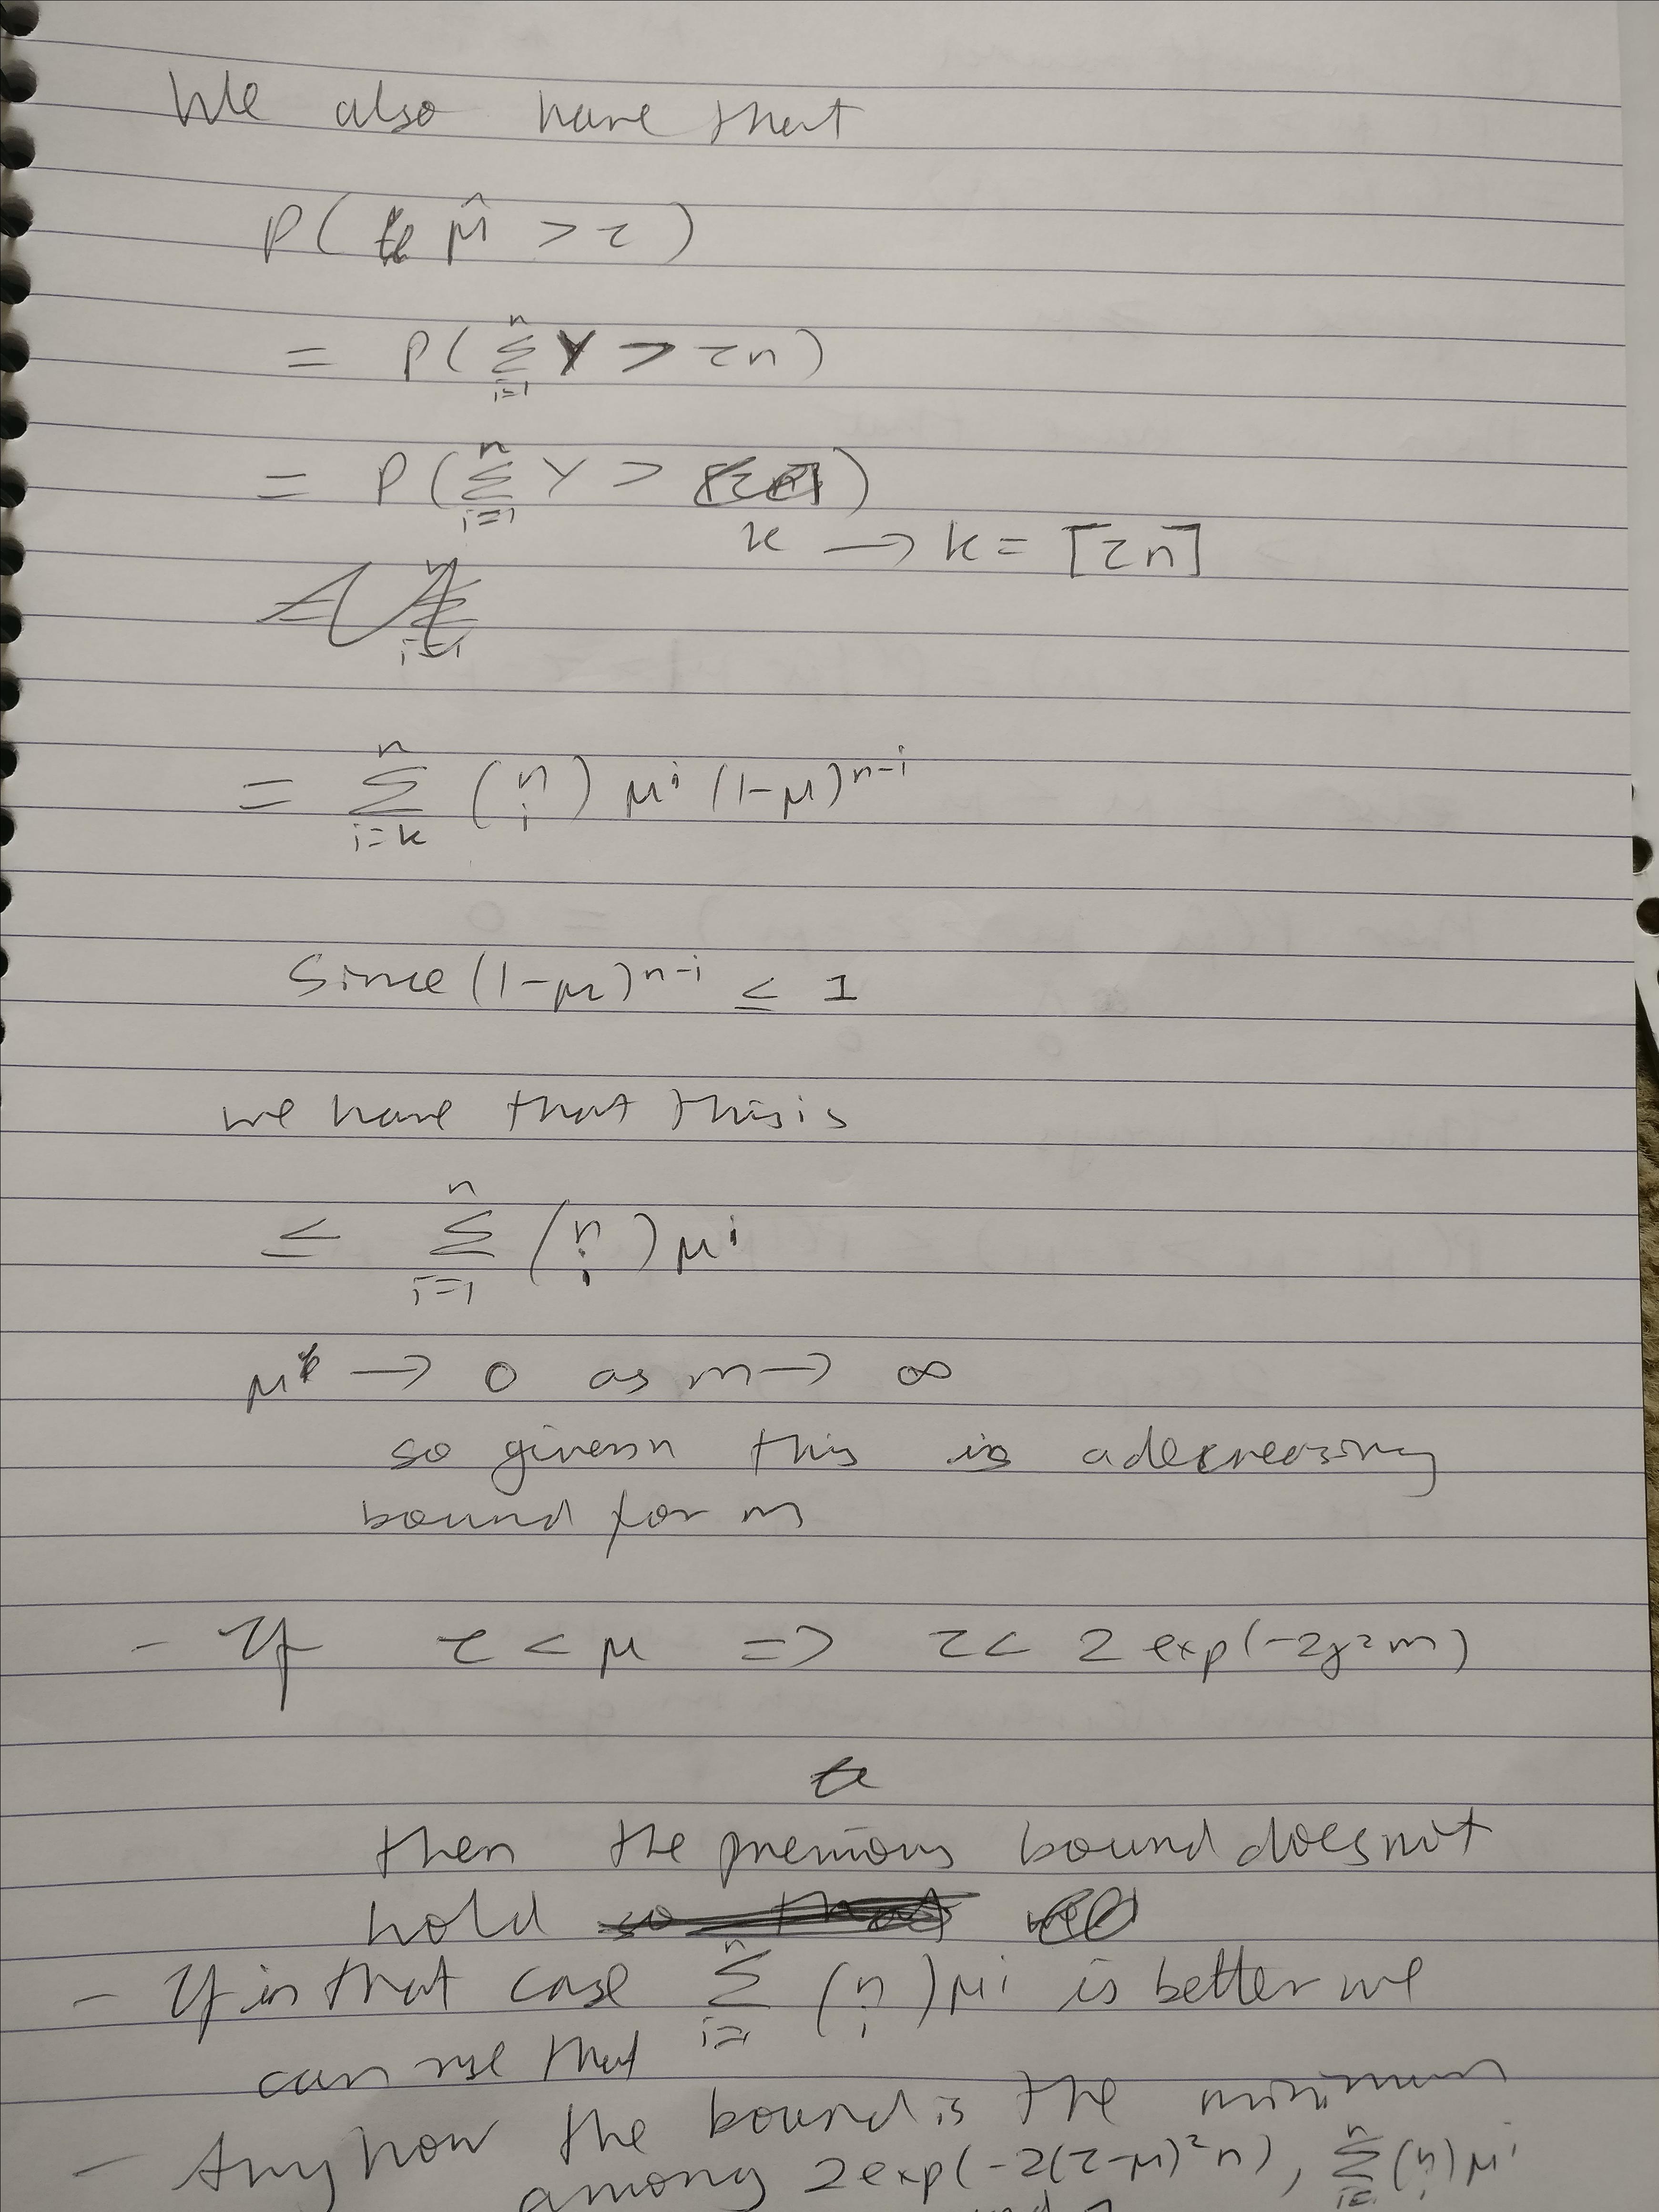 We also have that
P( μ̂ > τ )
= P( ∑_{i=1}^{n} Y > τn )
= P( ∑_{i=1}^{n} Y > )
k → k = ⌈τn⌉
= ∑_{i=k}^{n} (n i) μ^i (1-μ)^{n-i}
Since (1-μ)^{n-i} ≤ 1
we have that this is
≤ ∑_{i=1}^{n} (n i) μ^i
μ → 0 as m → ∞
so given n this is a decreasing
bound for m
- If τ < μ => τ < 2 exp(-2γ²m)
then the previous bound does not
hold
- If in that case ∑_{i=1}^{n} (n i) μ^i is better we
can use that
- Anyhow the bound is the minimum
among 2exp(-2(τ-μ)²n), ∑^{n} (n i) μ^i